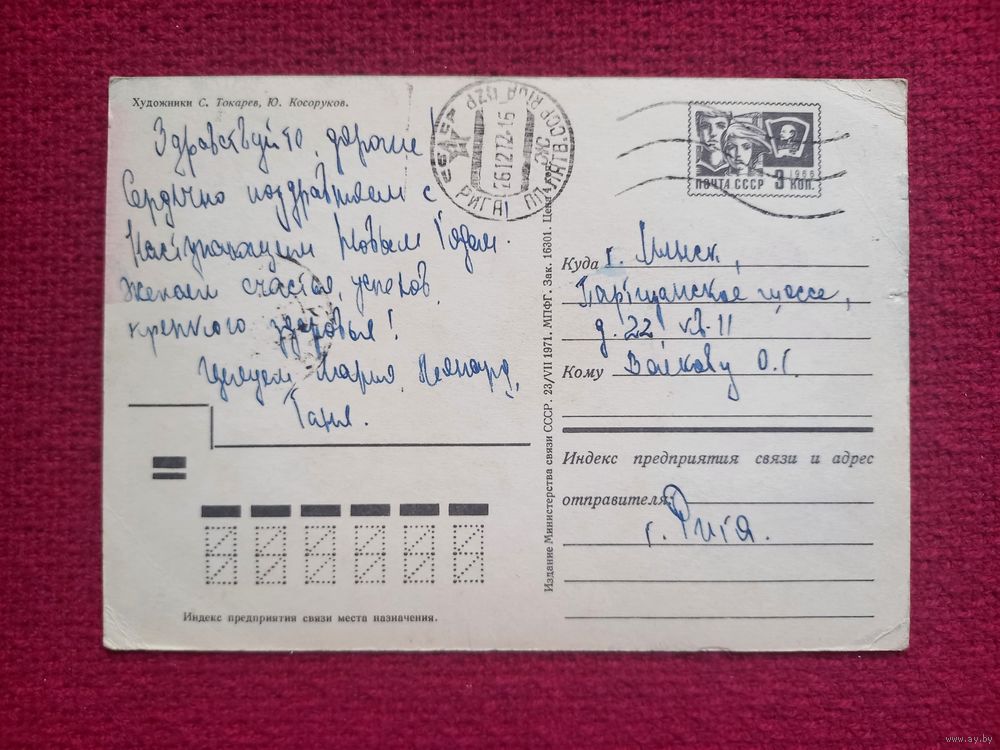 Художники С. Токарев, Ю. Косоруков.
Здравствуйте, дорогие!
Сердечно поздравляем с
Наступающим Новым Годом.
Желаем счастья, успехов,
крепкого здоровья!
Целуем, Мария, Леонард,
Таня.
Индекс предприятия связи места назначения.
Издание Министерства связи СССР. 23/VII 1971. МПФГ. Зак. 16301. Цена 4 коп.
РИГА
26 12 72-16
ЛАТВ.ССР RIGA
ПОЧТА СССР 3 КОП.
1966
Куда г. Минск,
шоссе,
д. 22, кв. 11
Кому Волкову О. Г.
Индекс предприятия связи и адрес
отправителя:
г. Рига.
www.ay.by